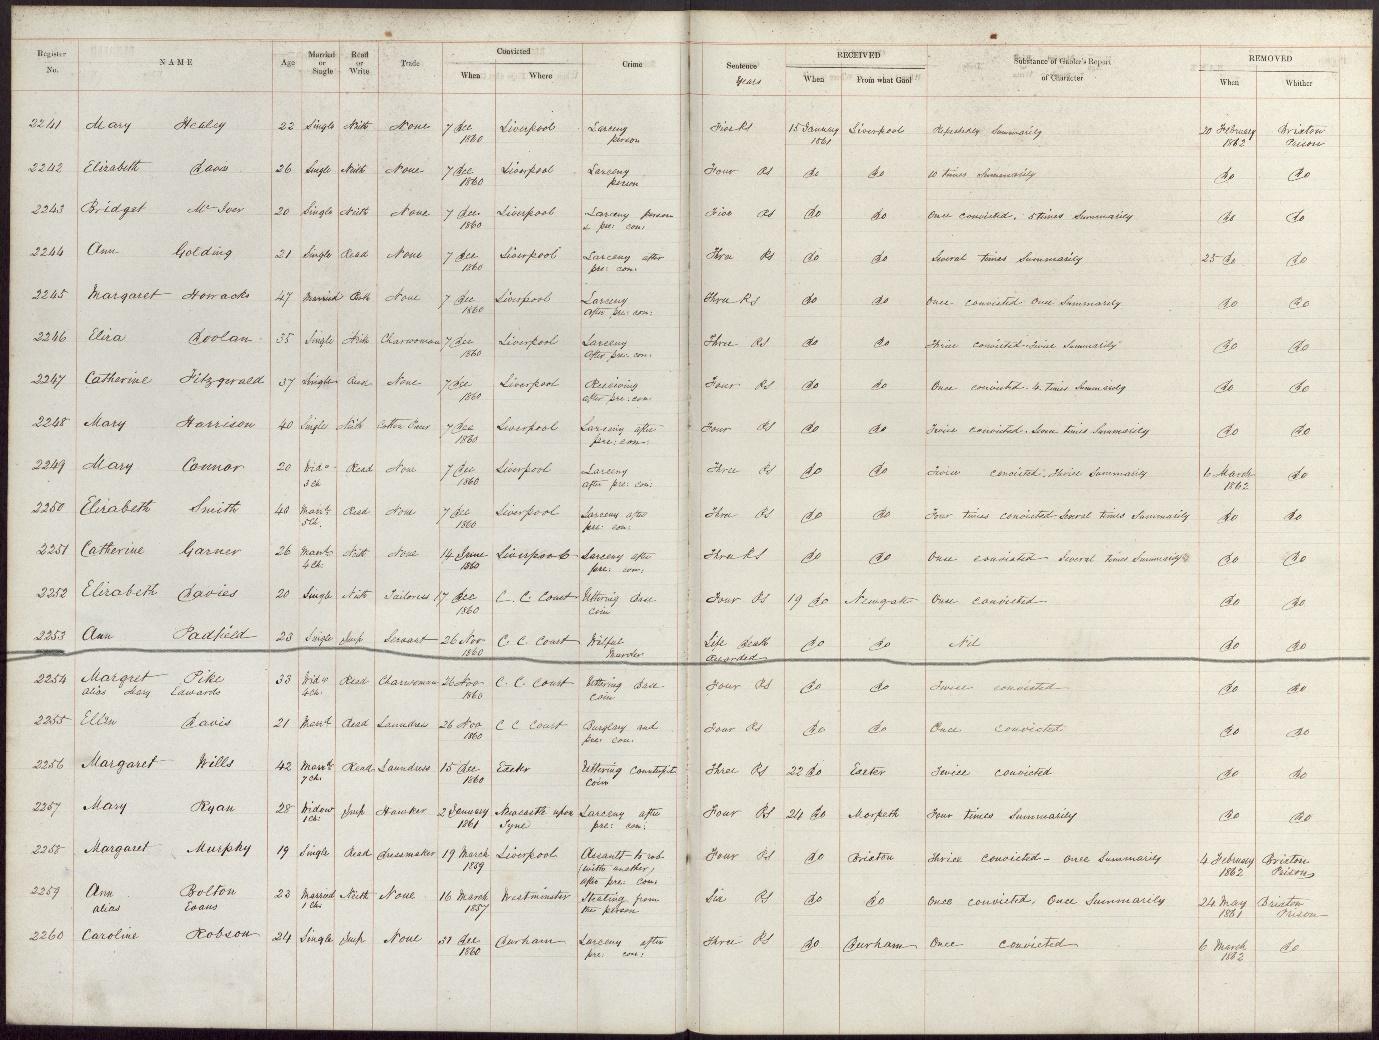 Register No. NAME Age Married or Single Read or Write Trade Convicted When Where Crime Sentence Years RECEIVED When From what Gaol Substance of Gaoler's Report of Character REMOVED When Whither
2241 Mary Healey 22 Single Neith None 7 Dec 1860 Liverpool Larceny person Five PS 15 January 1861 Liverpool Repeatedly Summarily 20 February 1862 Brixton Prison
2242 Elizabeth Davis 26 Single Neith None 7 Dec 1860 Liverpool Larceny person Four PS Do Do 10 times Summarily Do Do
2243 Bridget McIver 20 Single Neith None 7 Dec 1860 Liverpool Larceny person & pre: con: Five PS Do Do Once convicted. 5 times Summarily Do Do
2244 Ann Golding 21 Single Read None 7 Dec 1860 Liverpool Larceny after pre: con: Three PS Do Do Several times Summarily 25 Do Do
2245 Margaret Horracks 47 Married Both None 7 Dec 1860 Liverpool Larceny after pre: con: Three PS Do Do Once convicted Once Summarily Do Do
2246 Eliza Doolan 35 Single Neith Charwoman 7 Dec 1860 Liverpool Larceny after pre: con: Three PS Do Do Thrice convicted Twice Summarily Do Do
2247 Catherine Fitzgerald 37 Single Read None 7 Dec 1860 Liverpool Receiving after pre: con: Four PS Do Do Once convicted. 4 times Summarily Do Do
2248 Mary Harrison 40 Single Neith Cotton 7 Dec 1860 Liverpool Larceny after pre: con: Four PS Do Do Twice convicted. times Summarily Do Do
2249 Mary Connor 20 Wid 3 ch Read None 7 Dec 1860 Liverpool Larceny after pre: con: Three PS Do Do Twice convicted. Thrice Summarily 6 March 1862 Do
2250 Elizabeth Smith 40 Marrd 5 Ch. Read None 7 Dec 1860 Liverpool Larceny after pre: con: Three PS Do Do Four times convicted Several times Summarily Do Do
2251 Catherine Garner 26 Marrd 4 Ch. Neith None 14 June 1860 Liverpool Larceny after pre: con: Three PS Do Do Once convicted Several times Summarily Do Do
2252 Elizabeth Davies 20 Single Neith Tailoress 17 Dec 1860 C. C. Court Uttering Base Coin Four PS 19 Do Newgate Once convicted Do Do
2253 Ann Padfield 23 Single Imp Servant 26 Nov 1860 C C Court Wilful Murder Life death Recorded Do Do Nil Do Do
2254 Margret Pike alias Mary Edwards 33 Wid 4 Ch. Read Charwoman 26 Nov 1860 C. C. Court Uttering Base Coin Four PS Do Do Twice convicted Do Do
2255 Ellen Davis 21 Marrd Read Laundress 26 Nov 1860 C C Court Burglary and pre: con: Four PS Do Do Once convicted Do Do
2256 Margaret Wills 42 Marrd 7 ch. Read Laundress 15 Dec 1860 Exeter Uttering Counterfeit Coin Three PS 22 Do Exeter Twice convicted Do Do
2257 Mary Ryan 28 Widow 1 Ch. Imp Hawker 2 January 1861 Newcastle upon Tyne Larceny after pre: con: Four PS 24 Do Morpeth Four times Summarily Do Do
2258 Margaret Murphy 19 Single Read Dressmaker 19 March 1859 Liverpool Assault to rob (with another) after pre: con: Four PS Do Brixton Thrice convicted – once Summarily 4 February 1862 Brixton Prison
2259 Ann Bolton alias Evans 23 Married 1 Ch. Neith None 16 March 1857 Westminster Stealing from the person Six PS Do Do Once convicted, Once Summarily 24 May 1861 Brixton Prison
2260 Caroline Robson 24 Single Imp None 31 Dec 1860 Durham Larceny after pre: con: Three PS Do Durham Once convicted 6 March 1862 Do